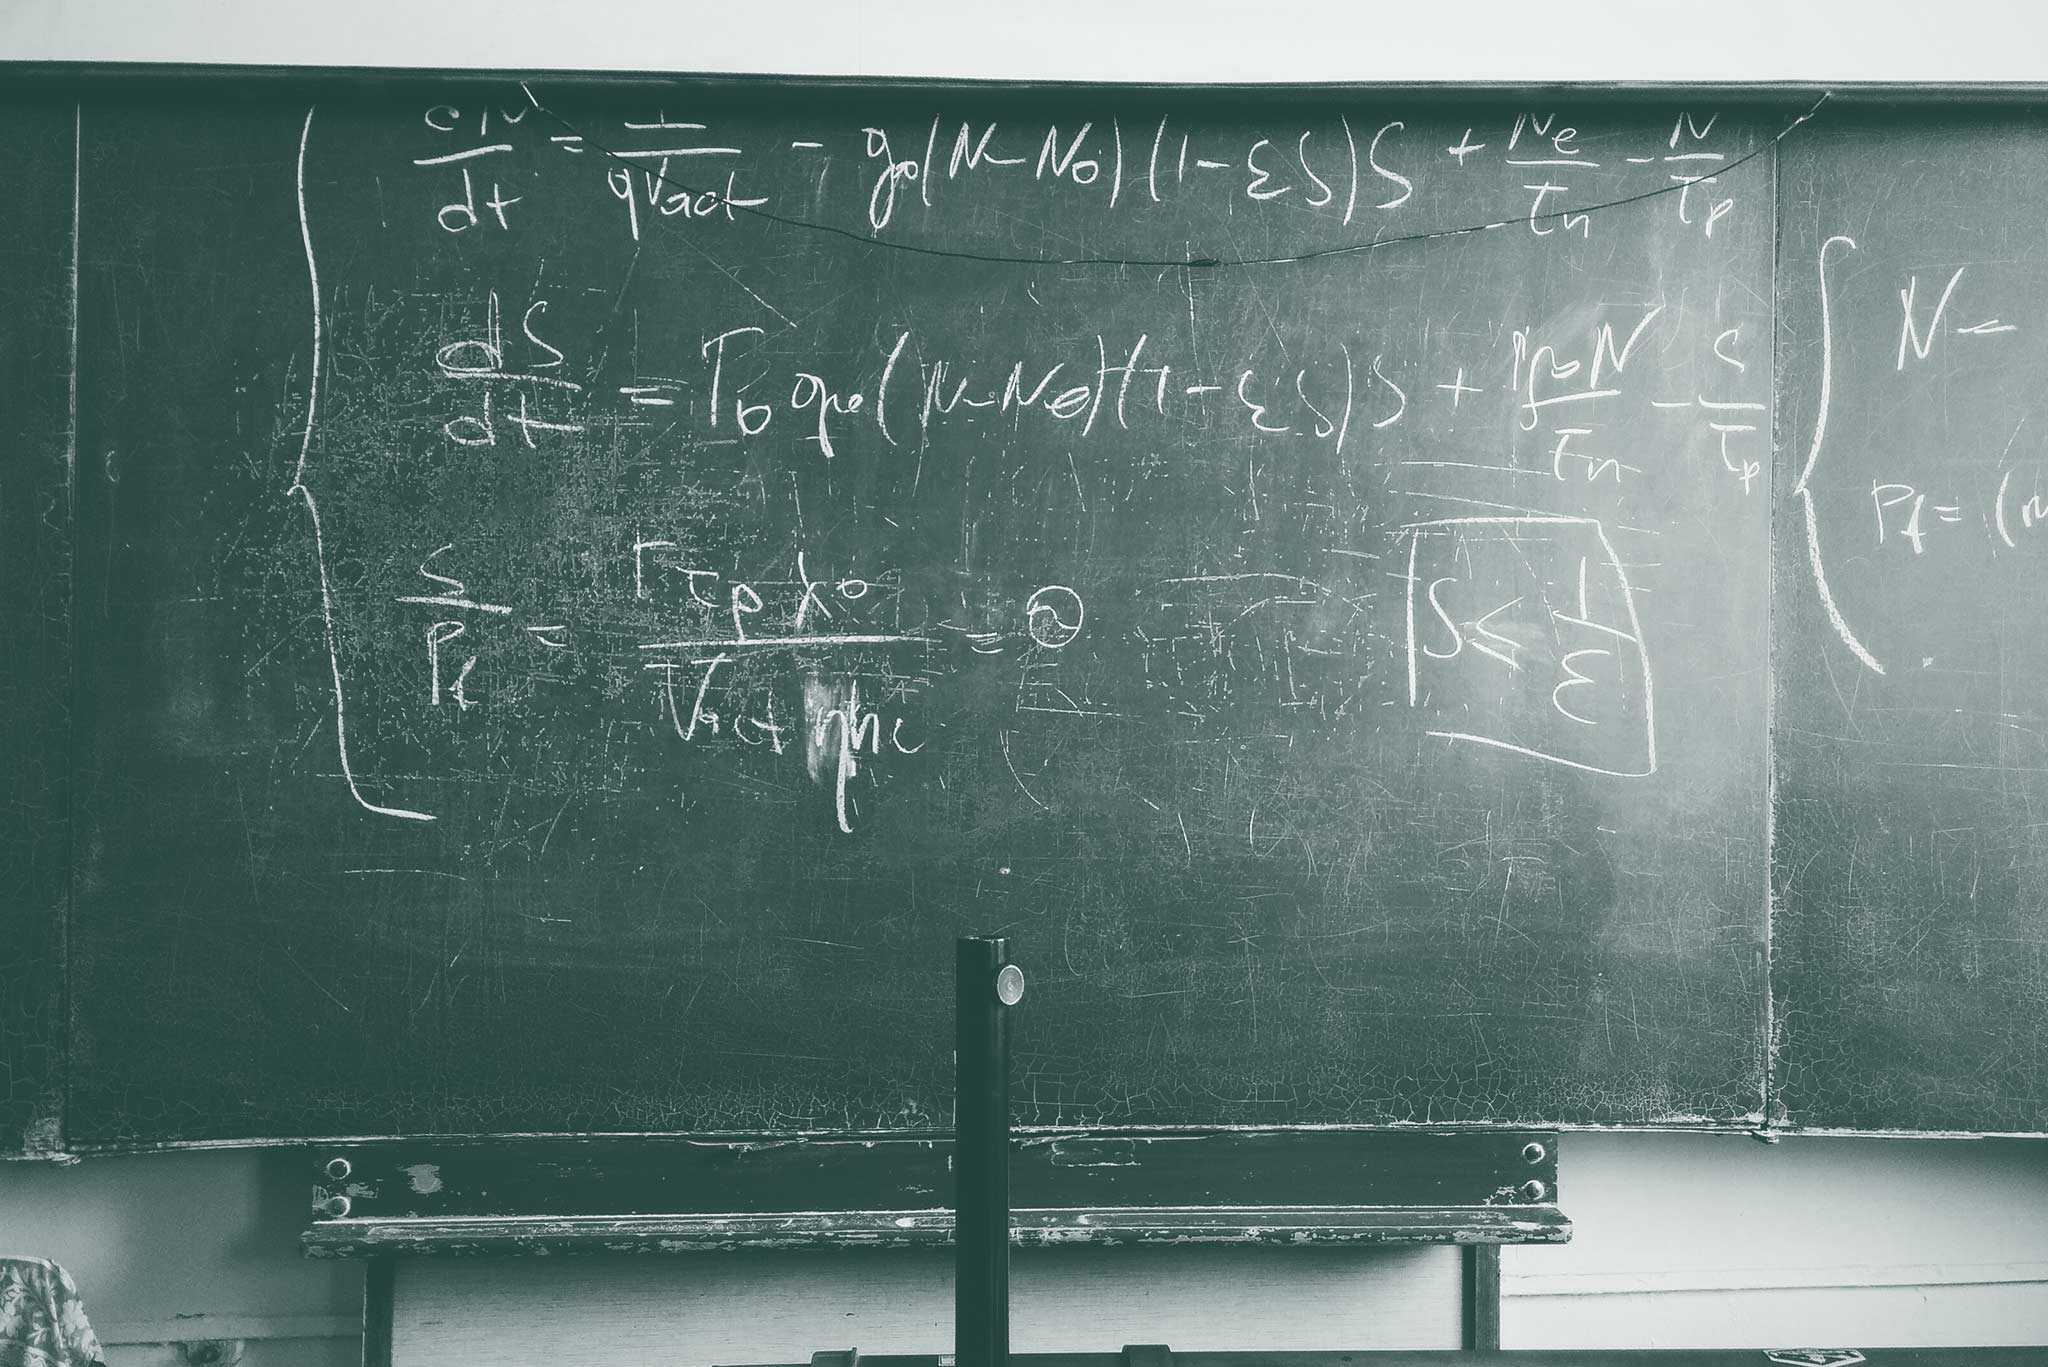 dN/dt = I/qVact - g0(N - N0)(1 - εS)S + Ne/τn - N/τp
dS/dt = Γ0 g0(N - N0)(1 - εS)S + Γβ0N/τn - S/τp
S/Pf = Γτpλ0/Vact ηhc =
S ≤ 1/ε
N -
Pf = (m